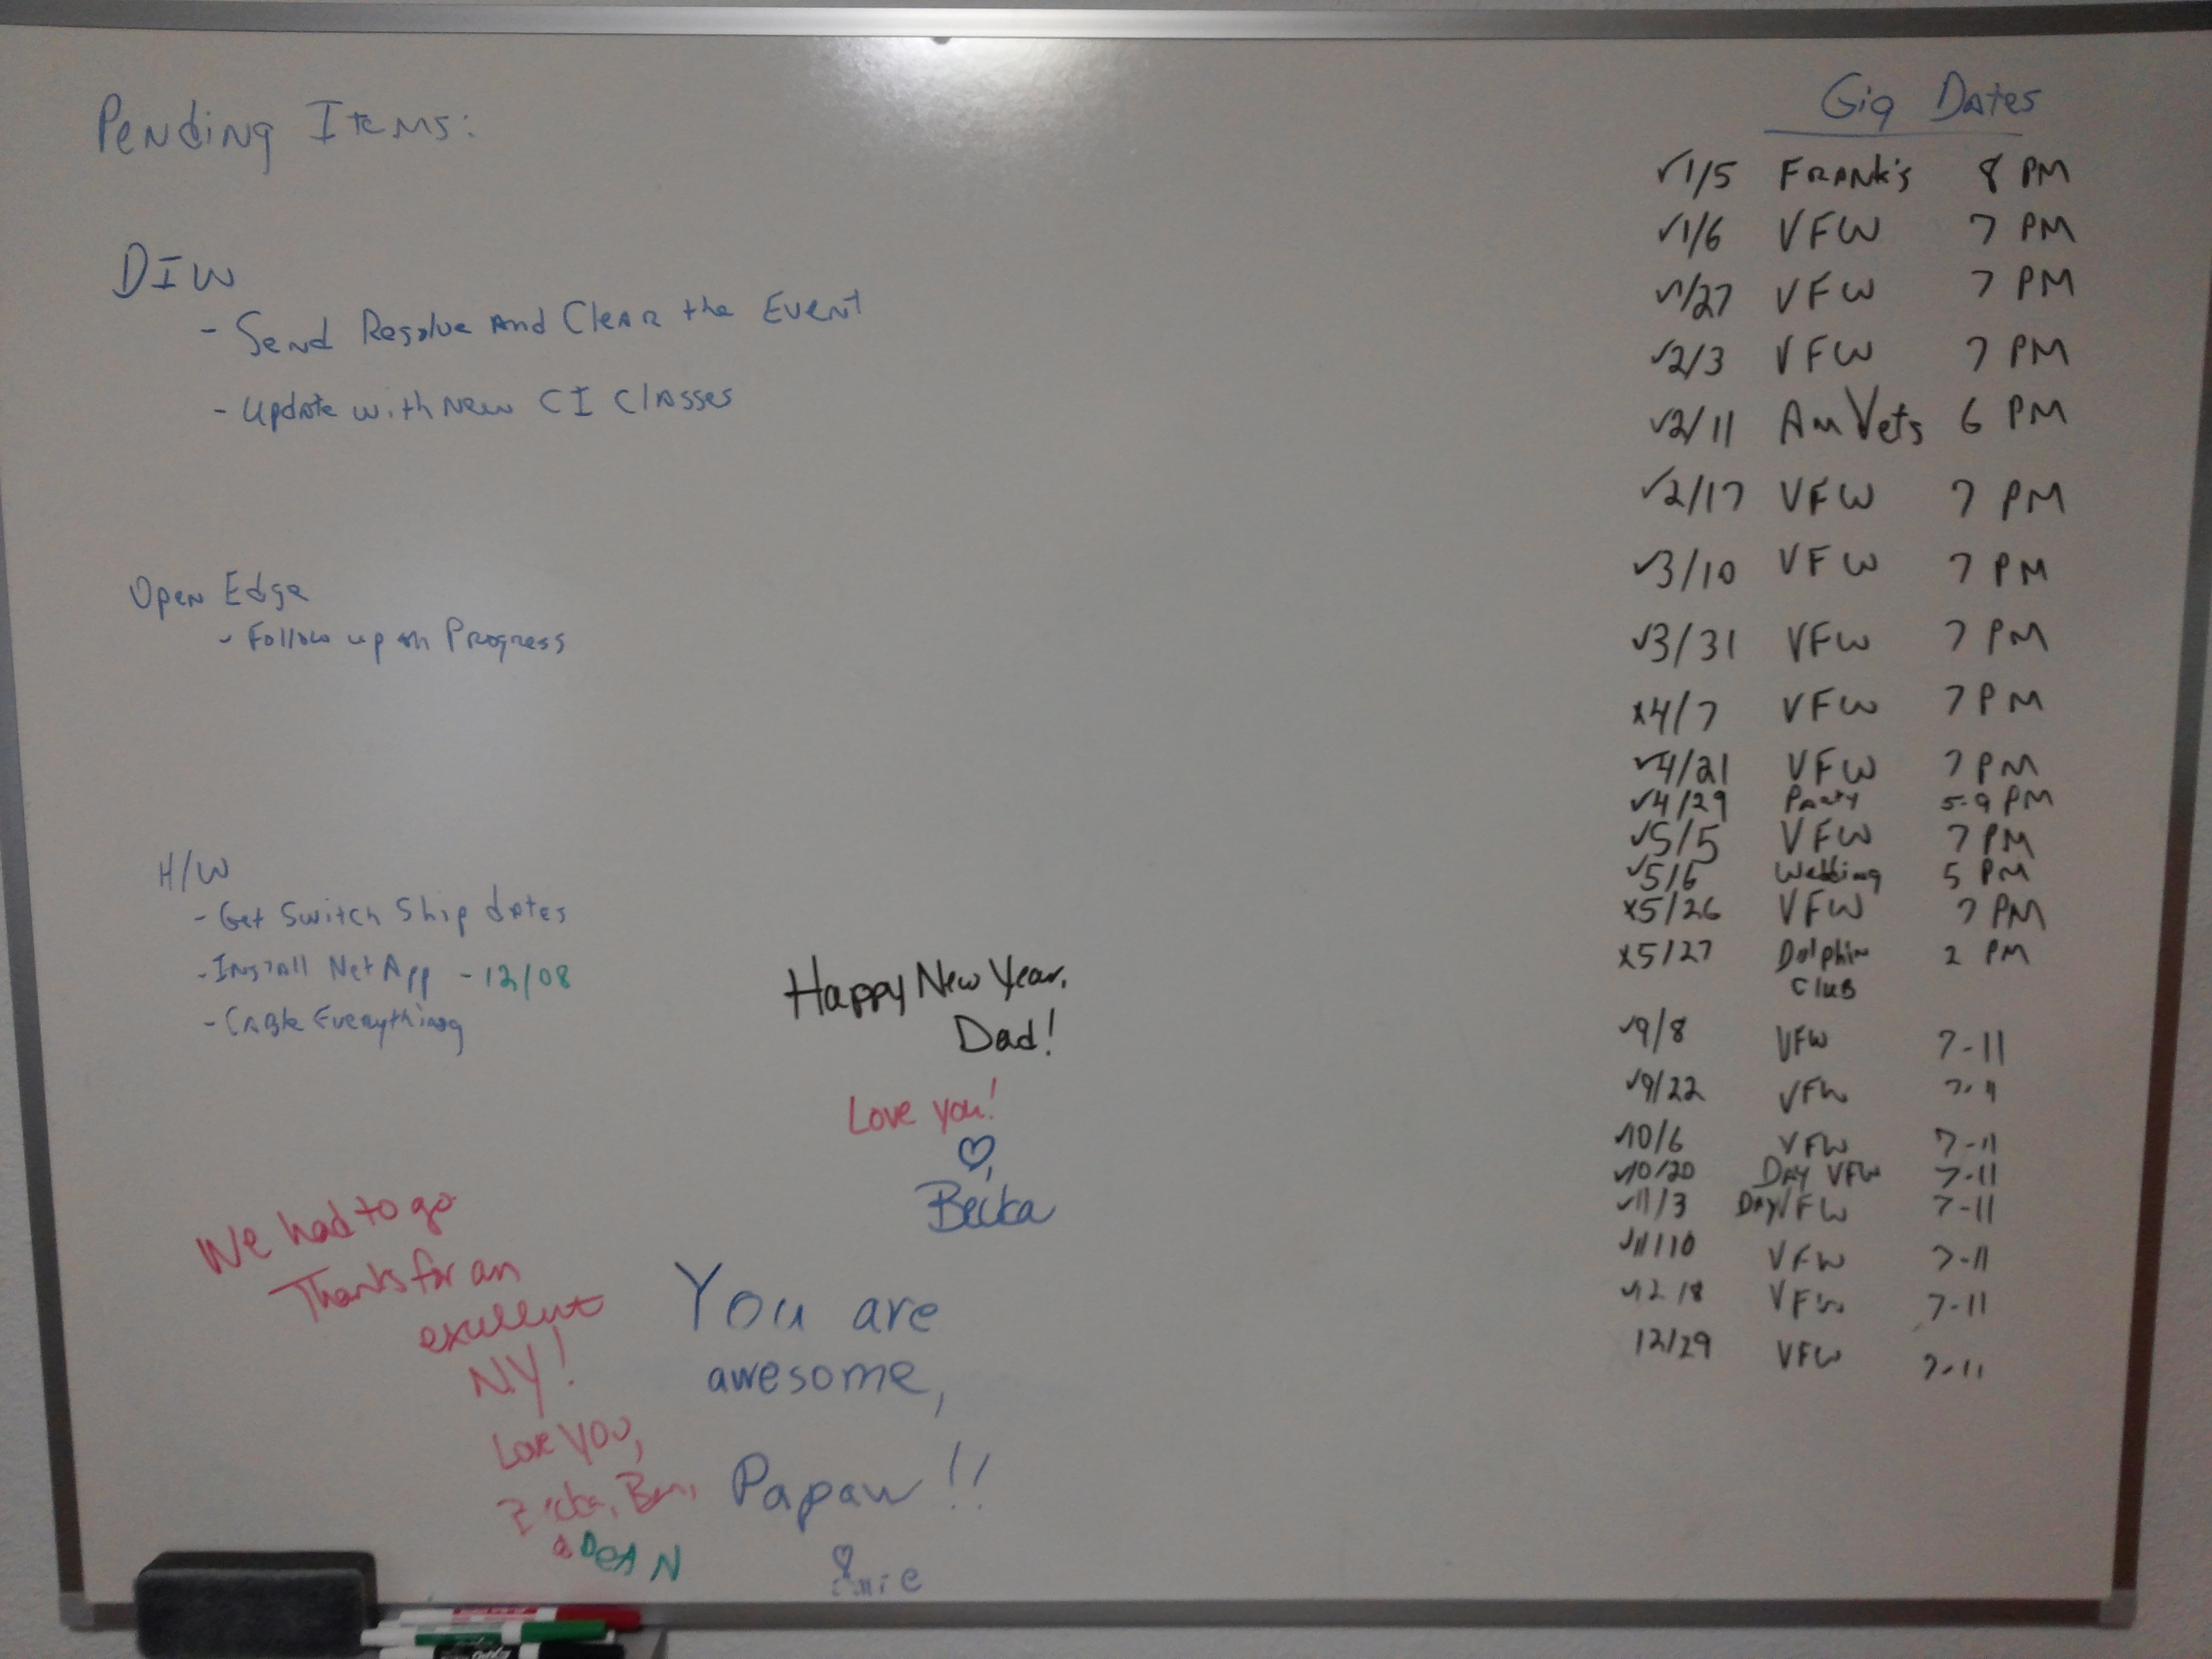 Pending Items:
DIW
- Send Resolve And Clear the Event
- Update with New CI Classes
Open Edge
- Follow up on Progress
H/W
- Get Switch Ship dates
- Install NetApp - 12/08
- Cable Everything
Happy New Year,
Dad!
Love you!
♡,
Becka
We had to go
Thanks for an
excellent
NY!
Love you,
Ben,
& DeAN
You are
awesome,
Papaw!!
♡
Gig Dates
✓1/5 FRANK's 8 PM
✓1/6 VFW 7 PM
✓1/27 VFW 7 PM
✓2/3 VFW 7 PM
✓2/11 AmVets 6 PM
✓2/17 VFW 7 PM
✓3/10 VFW 7 PM
✓3/31 VFW 7 PM
x4/7 VFW 7 PM
✓4/21 VFW 7 PM
✓4/29 Party 5-9 PM
✓5/5 VFW 7 PM
✓5/6 Wedding 5 PM
x5/26 VFW 7 PM
x5/27 Dolphin 2 PM
Club
✓9/8 VFW 7-11
✓9/22 VFW 7-11
✓10/6 VFW 7-11
✓10/20 DAY VFW 7-11
✓11/3 DAY VFW 7-11
✓11/10 VFW 7-11
✓12/8 VFW 7-11
12/29 VFW 7-11